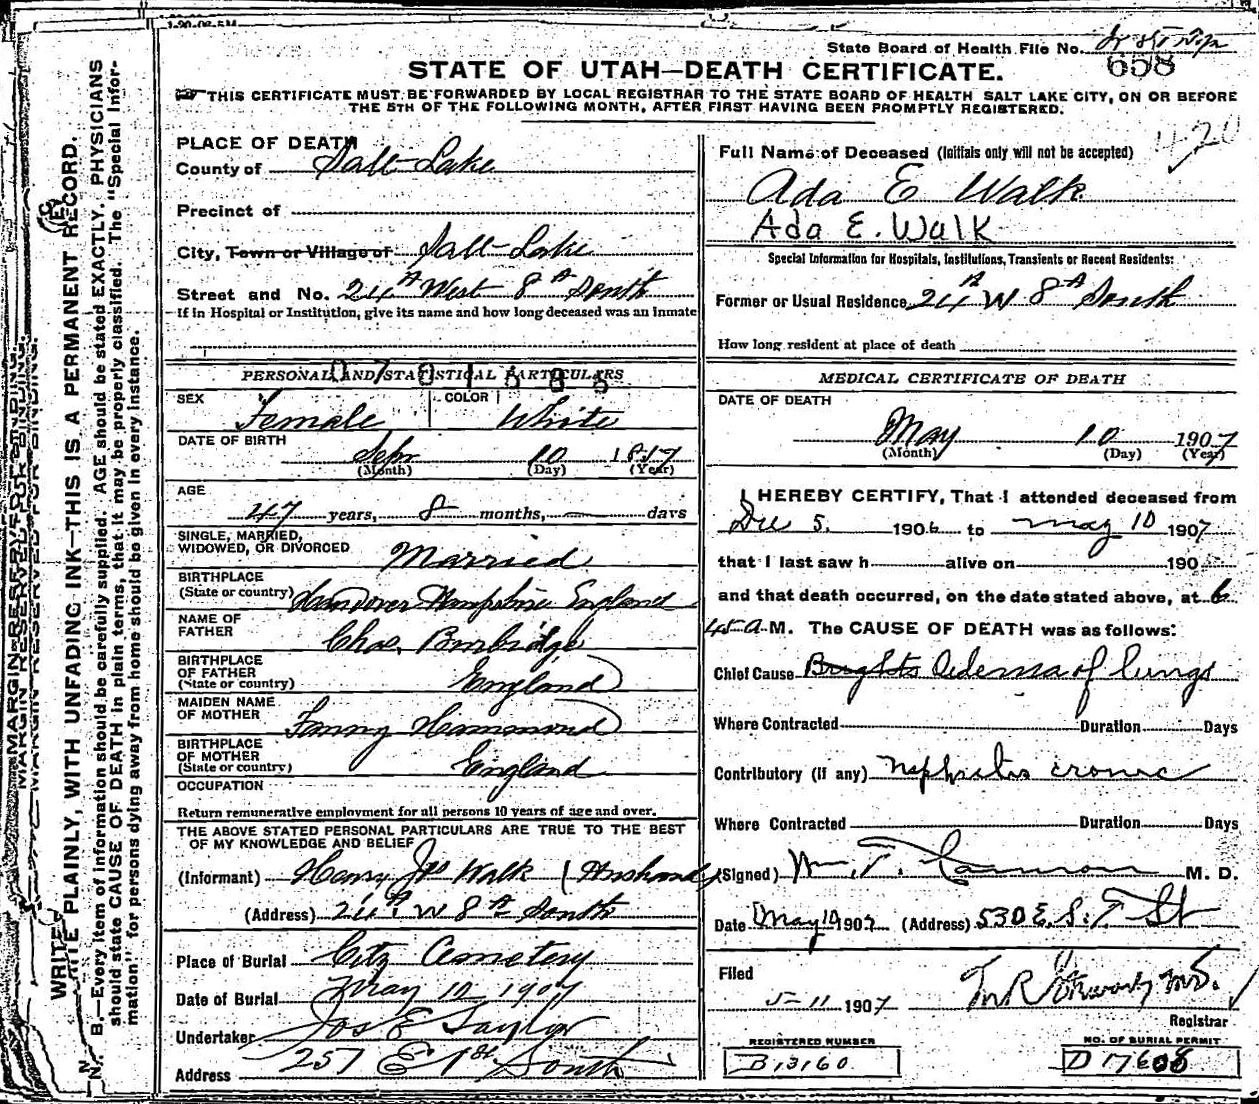 State Board of Health File No.
658
STATE OF UTAH—DEATH CERTIFICATE.
THIS CERTIFICATE MUST BE FORWARDED BY LOCAL REGISTRAR TO THE STATE BOARD OF HEALTH SALT LAKE CITY, ON OR BEFORE
THE 5TH OF THE FOLLOWING MONTH, AFTER FIRST HAVING BEEN PROMPTLY REGISTERED.
420
PLACE OF DEATH
County of Salt Lake
Precinct of
City, Town or Village of Salt Lake
Street and No. 24 A West 8th South
If in Hospital or Institution, give its name and how long deceased was an inmate
PERSONAL AND STATISTICAL PARTICULARS
0701585
SEX Female COLOR White
DATE OF BIRTH
Sep 10
(Month) (Day) (Year)
AGE
47 years, 8 months, — days
SINGLE, MARRIED,
WIDOWED, OR DIVORCED Married
BIRTHPLACE
(State or country) Hampshire England
NAME OF
FATHER Chas. Burbidge
BIRTHPLACE
OF FATHER
(State or country) England
MAIDEN NAME
OF MOTHER Fanny Hammond
BIRTHPLACE
OF MOTHER
(State or country) England
OCCUPATION
Return remunerative employment for all persons 10 years of age and over.
THE ABOVE STATED PERSONAL PARTICULARS ARE TRUE TO THE BEST
OF MY KNOWLEDGE AND BELIEF
(Informant) Henry Jas Walk (Husband)
(Address) 24 A W 8th South
Place of Burial City Cemetery
Date of Burial May 12 1907
Undertaker Jos E Taylor
Address 257 E 1st South
Full Name of Deceased (Initials only will not be accepted)
Ada E Walk
Ada E. Walk
Special Information for Hospitals, Institutions, Transients or Recent Residents:
Former or Usual Residence 24 A W 8th South
How long resident at place of death
MEDICAL CERTIFICATE OF DEATH
DATE OF DEATH
May 10 1907
(Month) (Day) (Year)
I HEREBY CERTIFY, That I attended deceased from
Dec 5. 1906 to May 10 1907
that I last saw h alive on 190
and that death occurred, on the date stated above, at 6
45 A. M. The CAUSE OF DEATH was as follows:
Chief Cause Brights Edema of lungs
Where Contracted Duration Days
Contributory (if any) Nephritis cronic
Where Contracted Duration Days
(Signed) Wm. T. Cannon M. D.
Date May 10 1907 (Address) 530 E. S. T St
Filed
5-11 1907
Registrar
REGISTERED NUMBER
B 13160
NO. OF BURIAL PERMIT
D 17608
MARGIN RESERVED FOR BINDING.
WRITE PLAINLY, WITH UNFADING INK—THIS IS A PERMANENT RECORD.
N. B.—Every item of information should be carefully supplied. AGE should be stated EXACTLY. PHYSICIANS
should state CAUSE OF DEATH in plain terms, that it may be properly classified. The "Special Infor-
mation" for persons dying away from home should be given in every instance.